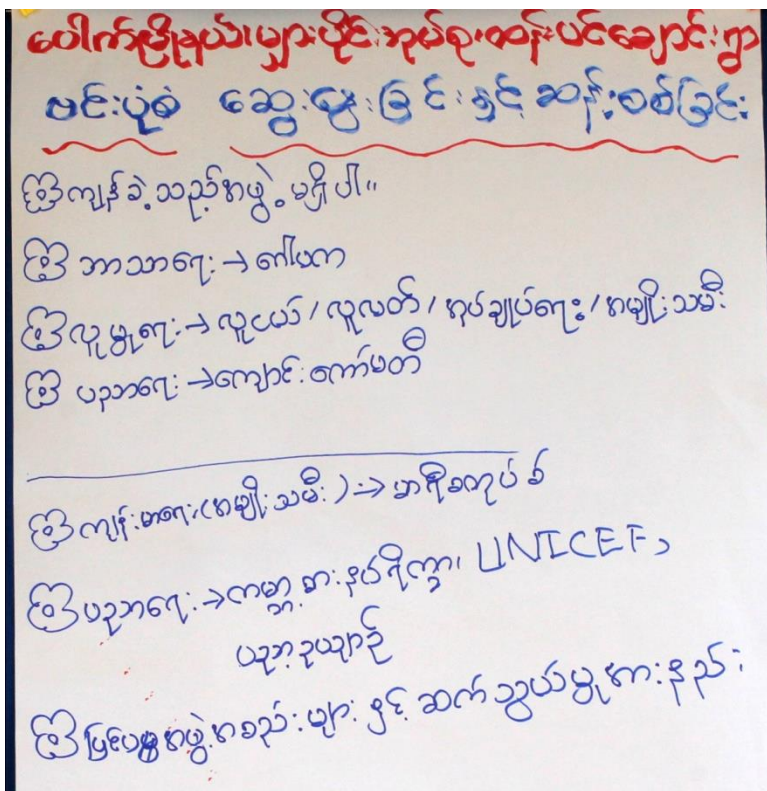 ပေါက်မြို့နယ်၊ မျှားပိုင်းအုပ်စု၊ ထန်းပင်ချောင်းရွာ
ဗင်းပုံစံ ဆွေးနွေးခြင်းနှင့် ဆန်းစစ်ခြင်း
ကျန်ခဲ့သည့်အဖွဲ့ မရှိပါ။
ဘာသာရေး → ဂေါပက
လူမှုရေး → လူငယ် / လူလတ် / အုပ်ချုပ်ရေး / အမျိုးသမီး
ပညာရေး → ကျောင်းကော်မတီ
ကျန်းမာရေး (အမျိုးသမီး) → မာရီစတုပ်စ်
ပညာရေး → ကမ္ဘာ့စားနပ်ရိက္ခာ၊ UNICEF,
ပညာ့ဥယျာဉ်
ပြင်ပမှအဖွဲ့အစည်းများနှင့် ဆက်သွယ်မှုအားနည်း